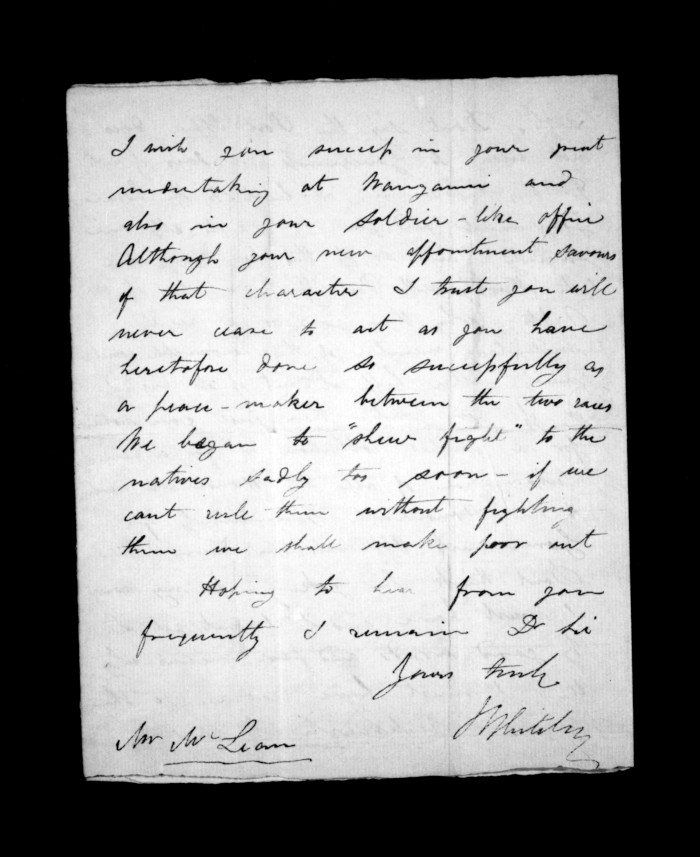 I wish you success in your great
undertaking at Wanganui and
also in your soldier-like office
Although your new appointment savours
of that character I trust you will
never cease to act as you have
heretofore done so successfully as
a peace-maker between the two races
We began to "shew fight" to the
natives sadly too soon - if we
cant rule them without fighting
them we shall make poor out
Hoping to hear from you
frequently I remain Dr Sir
Yours truly
Mr McLean